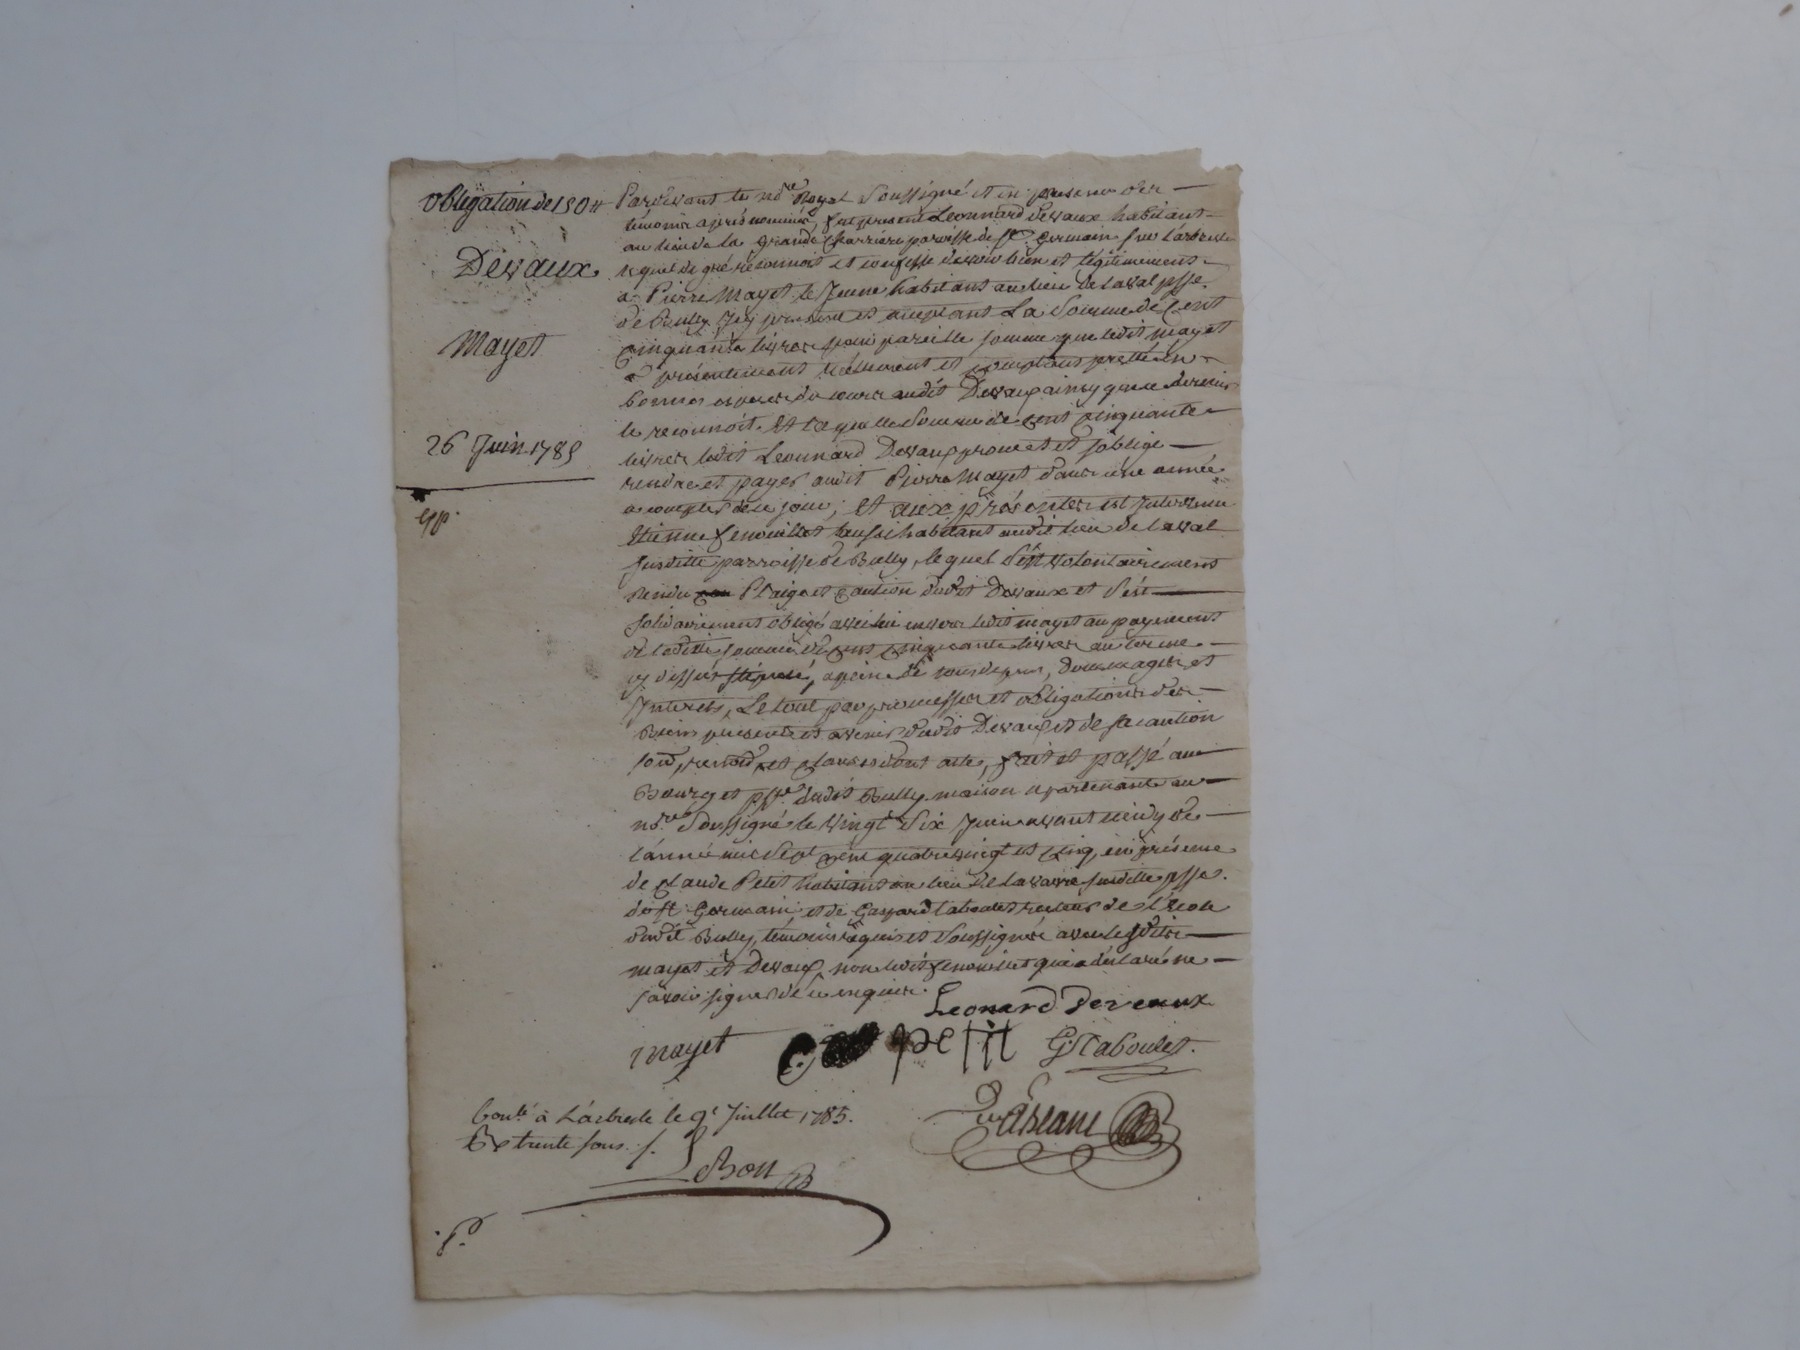 obligation de 150 ₶
Devaux
Mayet
26 Juin 1785
Exp.
Pardevant le no.re Royal Soussigné et en presence des
temoins apres nommés, fut present Leonnard Devaux habitant
au lieu de la grande Charriere paroisse de St. Germain sur L'arbresle
lequel de gré reconnoit et confesse devoir bien et légitimement
a Pierre Mayet le Jeune habitant au lieu de Laval psse.
de Bully Icy present et acceptant La Somme de Cent
Cinquante livres pour pareille somme que ledit Mayet
a présentement réellement et comptant pretté en
bonnes especes du cours audit Devaux ainsy que ce dernier
le reconnoit. Et laquelle Somme de Cent Cinquante
livres ledit Leonnard Devaux promet et s'oblige
rendre et payer audit Pierre Mayet dans une année
a compter de ce jour; Et aux présentes est Intervenu
Etienne fenouillet aussi habitant audit lieu de Laval
susditte parroisse de Bully, lequel S'est volontairement
rendu Plaige et Caution dudit Devaux et S'est
solidairement obligé avec lui envers ledit Mayet au payement
de laditte somme de Cent Cinquante livres au terme
cy dessus stipulé, a peine de tous depens, dommages et
Interets, Le tout par promesses et obligations des
Biens presents et avenir dudit Devaux et de sa caution
soum, renond, et Clauses dont acte, fait et passé au
Bourg et psse. dudit Bully maison apartenante au
no.re Soussigné le Vingt Six Juin avant midy de
l'année mil Sept Cent quatrevingt et Cinq, en présence
de Claude Petit habitant au lieu de Lavarre susditte psse.
de St. Germain, et de Gaspard Taboulet recteur de l'Ecole
dudit Bully, témoins requis et Soussignés avec lesdits
Mayet et Devaux, non ledit fenouillet qui a déclaré ne
savoir signer de ce enquis.
Leonard Deveaux
mayet C petit G. Taboulet.
Conlé. à L'arbresle le 9e Juillet 1785.
trente sous. /.
Lebon